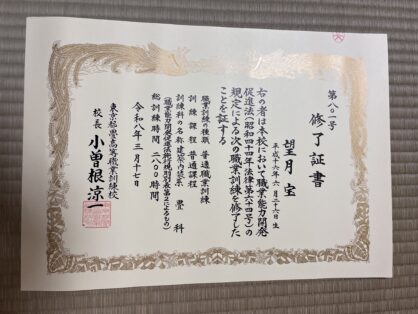 第八〇一号
修了証書
望月 宝
平成十六年六月二十六日生
右の者は本校において職業能力開発
促進法(昭和四十四年法律第六十四号)の
規定による次の職業訓練を修了した
ことを証する
職業訓練の種類 普通職業訓練
訓練課程 普通課程
訓練科の名称 建築内装系 畳科
(職業能力開発促進法施行規則別表第二によるもの)
総訓練時間 二八〇〇時間
令和八年三月十七日
東京都畳高等職業訓練校
校長 小曽根涼一